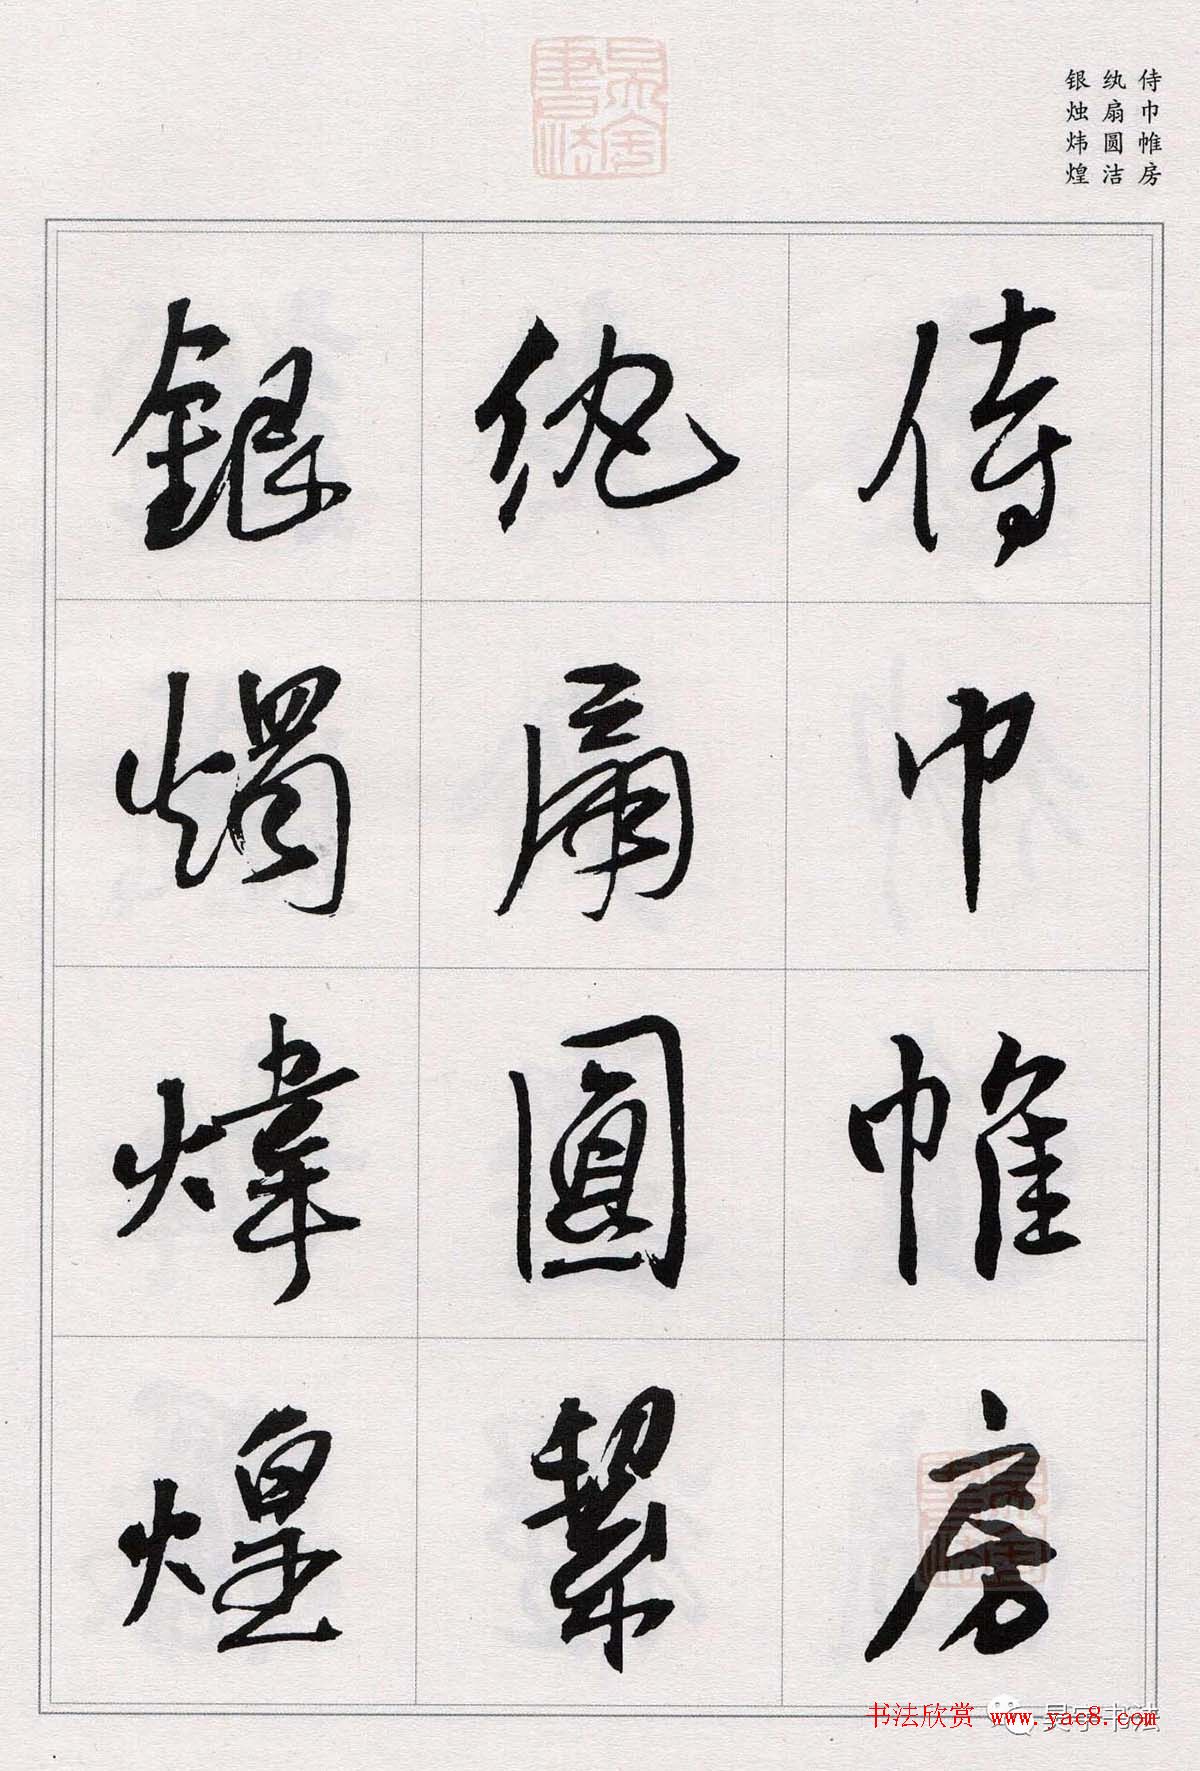 侍巾帷房
纨扇圆洁
银烛炜煌
侍巾帷房
纨扇圓絜
銀燭煒煌
书法欣赏 www.yac8.com